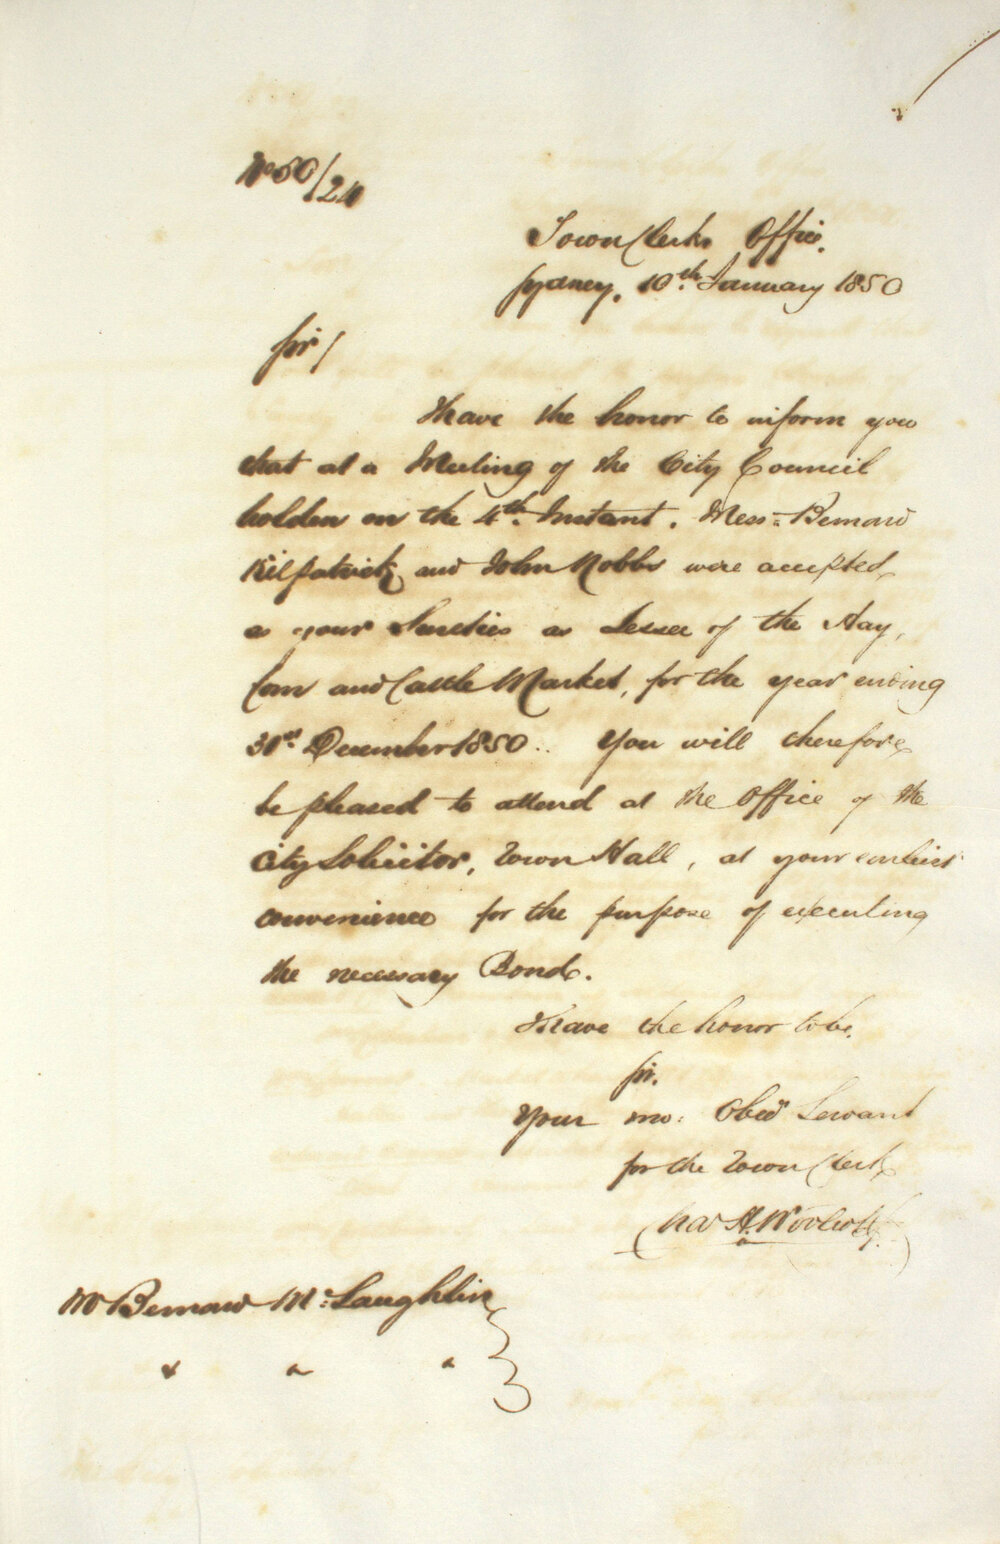 No 50/24
Town Clerks Office.
Sydney, 10th January 1850
Sir/
I have the honor to inform you
that at a Meeting of the City Council
holden on the 4th Instant. Mess: Bernard
Kilpatrick and John Nobbs were accepted
as your Sureties as Lessee of the Hay,
Corn and Cattle Market, for the year ending
31st December 1850.. You will therefore
be pleased to attend at the Office of the
City Solicitor, Town Hall, at your earliest
convenience for the purpose of executing
the necessary Bond.
I have the honor to be.
Sir.
Your mo: Obedt Servant
for the Town Clerk
Chas H. Woolcott
Mr Bernard Mc:Laughlin